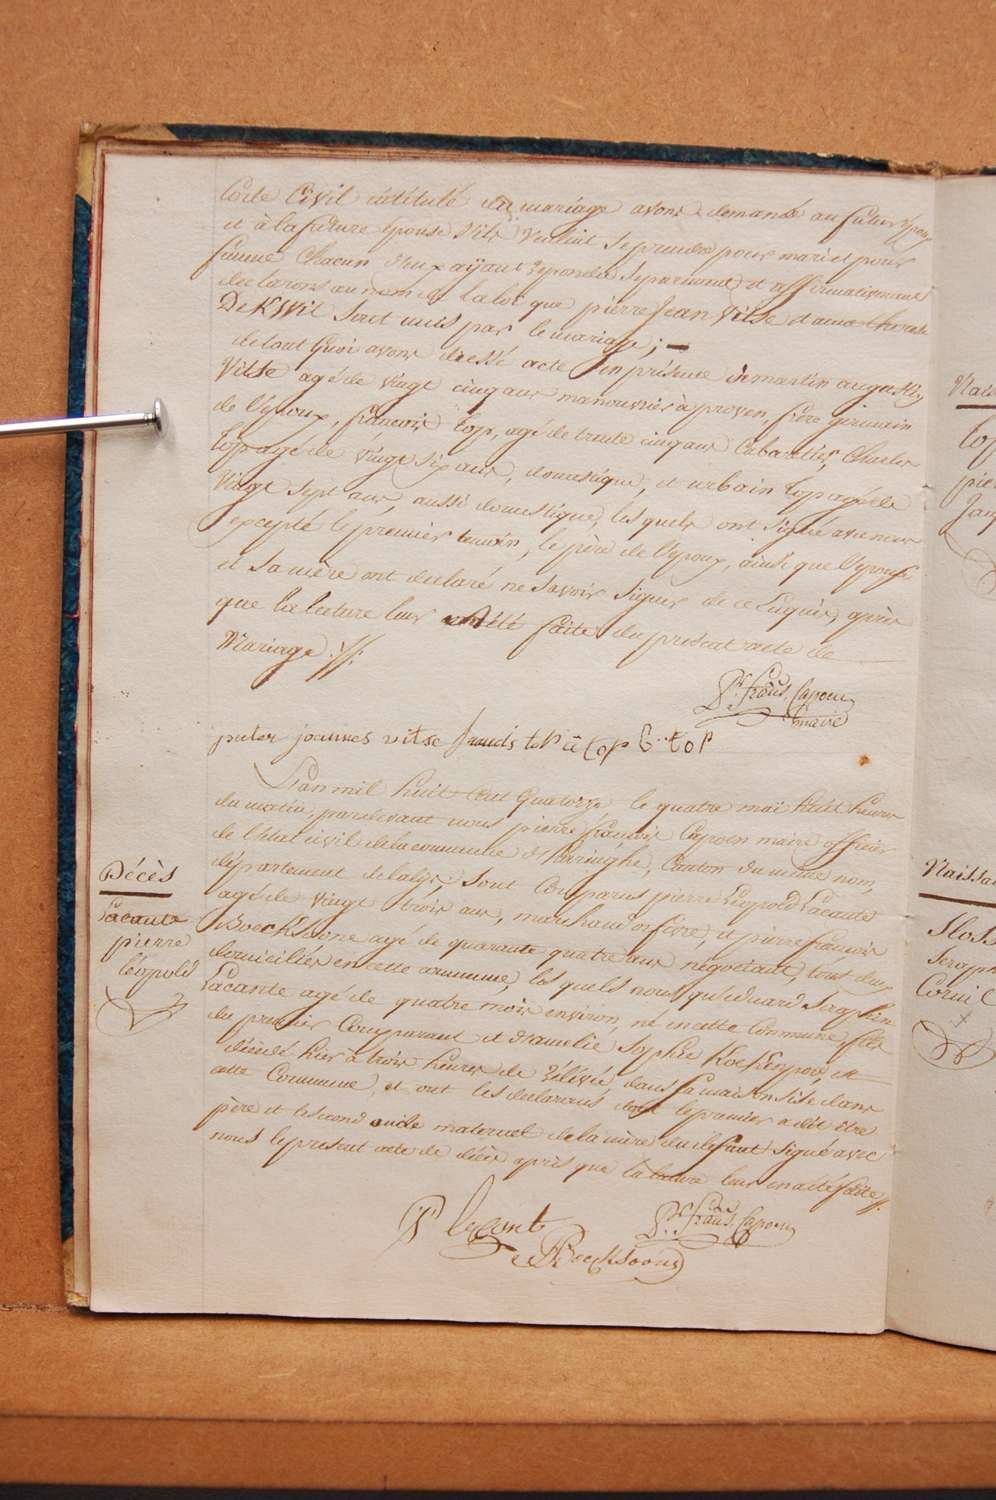 Code Civil intitulé du mariage avons demandé au futur époux
et à la future épouse s'ils veulent se prendre pour mari et pour
femme Chacun d'eux ayant repondu séparément et affirmativement
declarons au nom de la loi que pierre Jean Vitse et
De KWit sont unis par le mariage ;
de tout quoi avons dressé acte en présence de martin auguste
Vitse agé de vingt cinq ans manouvrier à proven, frère germain
de l'époux, francois Top, agé de trente cinq ans Cabaretier, Charles
Top agé de vingt six ans, domestique, et urbain Top agé de
Vingt sept ans, aussi domestique, les quels ont signé avec nous
excepté le premier temoin, le père de l'époux, ainsi que l'épouse
et sa mère ont declaré ne savoir signer de ce enquis, après
que la lecture leur a été faite du présent acte de
Mariage ./.
Pr. frans. Capoen
maire
peeter joannes vitse francis top C top
L'an mil huit Cent Quatorze le quatre mai huit heures
du matin, pardevant nous pierre françois Capoen maire officier
de l'état civil de la commune d'haringhe, Canton du même nom,
département de la lys, sont Comparus pierre Léopold Lacante
agé de vingt trois ans, marchand orfévre, et pierre françois
Boecksoone agé de quarante quatre ans négociant, tous deux
domiciliés en cette commune, les quels nous qu'eduard Seraphin
Lacante agé de quatre mois environ, né en cette Commune fils
du premier Comparant et d'amelie Sophie est
décédé hier à trois heures de rélévée dans sa maison sise dans
cette Commune, et ont les declarans dont le premier a dit être
père et le second oncle maternel de la mère du défunt signé avec
nous le présent acte de décès après que la lecture leur en a été faite ./.
P Lacante
Pr. frans. Capoen
Boecksoone
Décès
Lacante
pierre
léopold
Naissa
Sloss
Seraph
Corneil